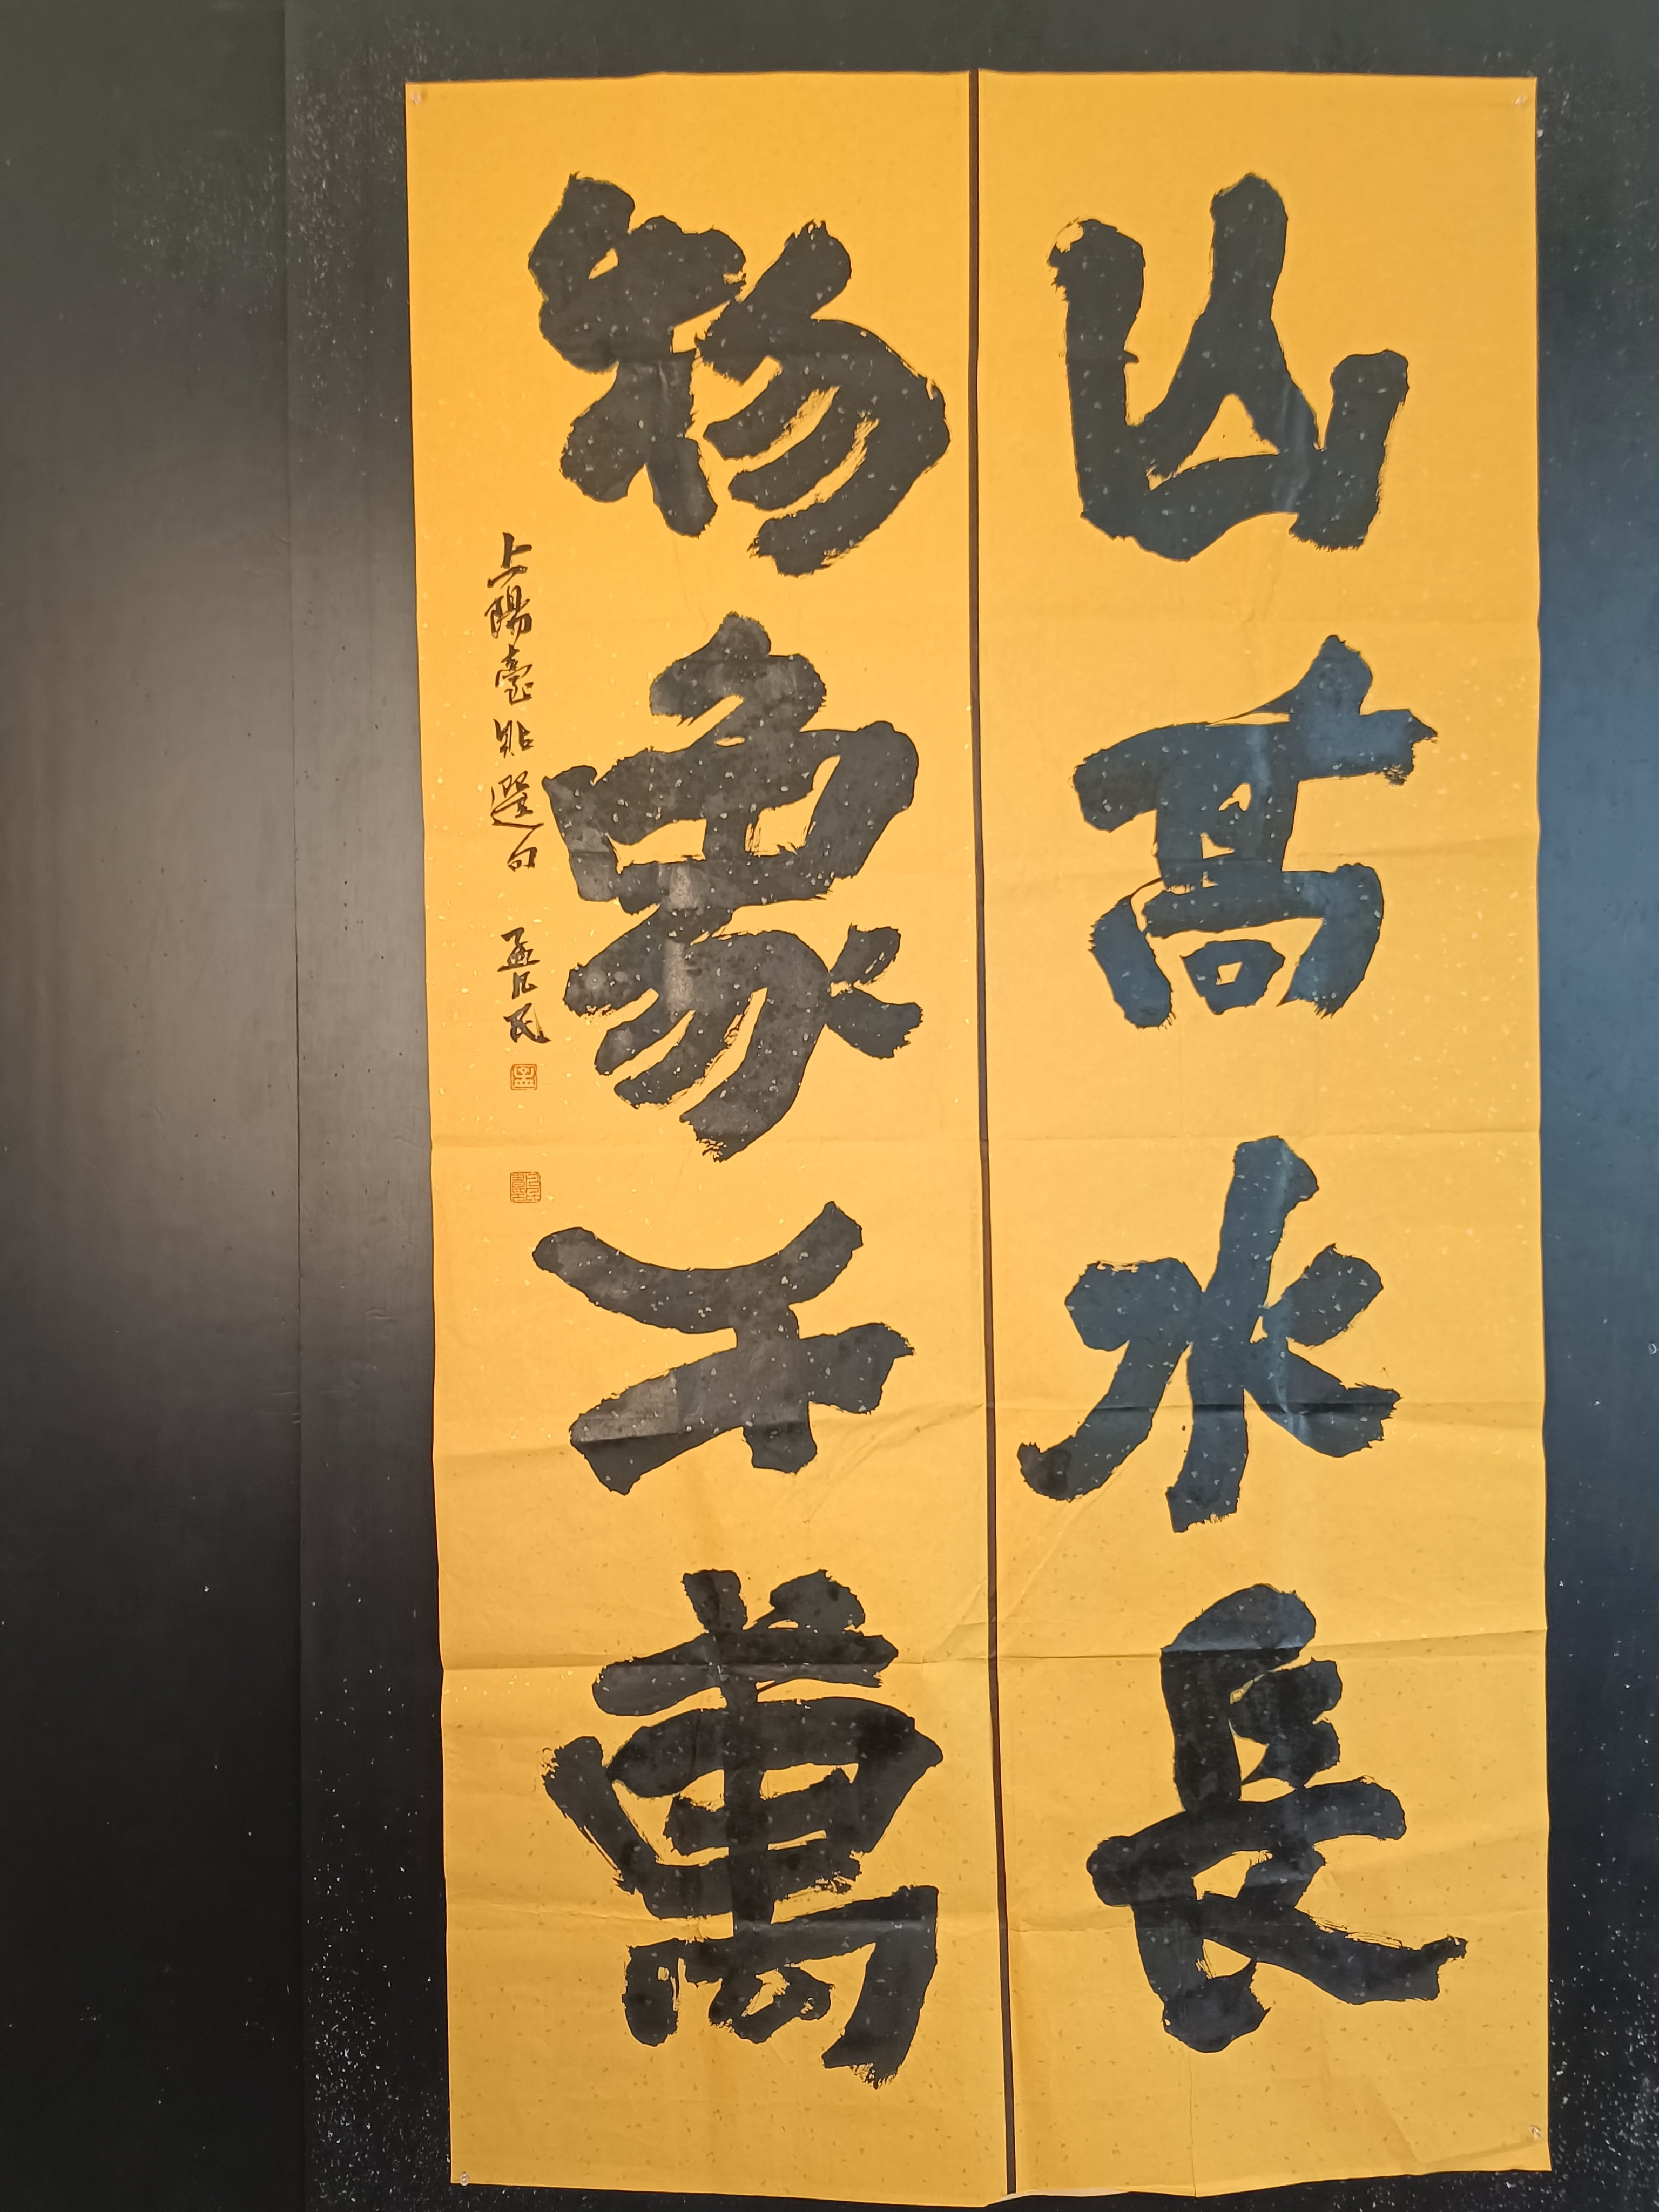 山高水長
物象千萬
上陽臺帖選句 孟凡民